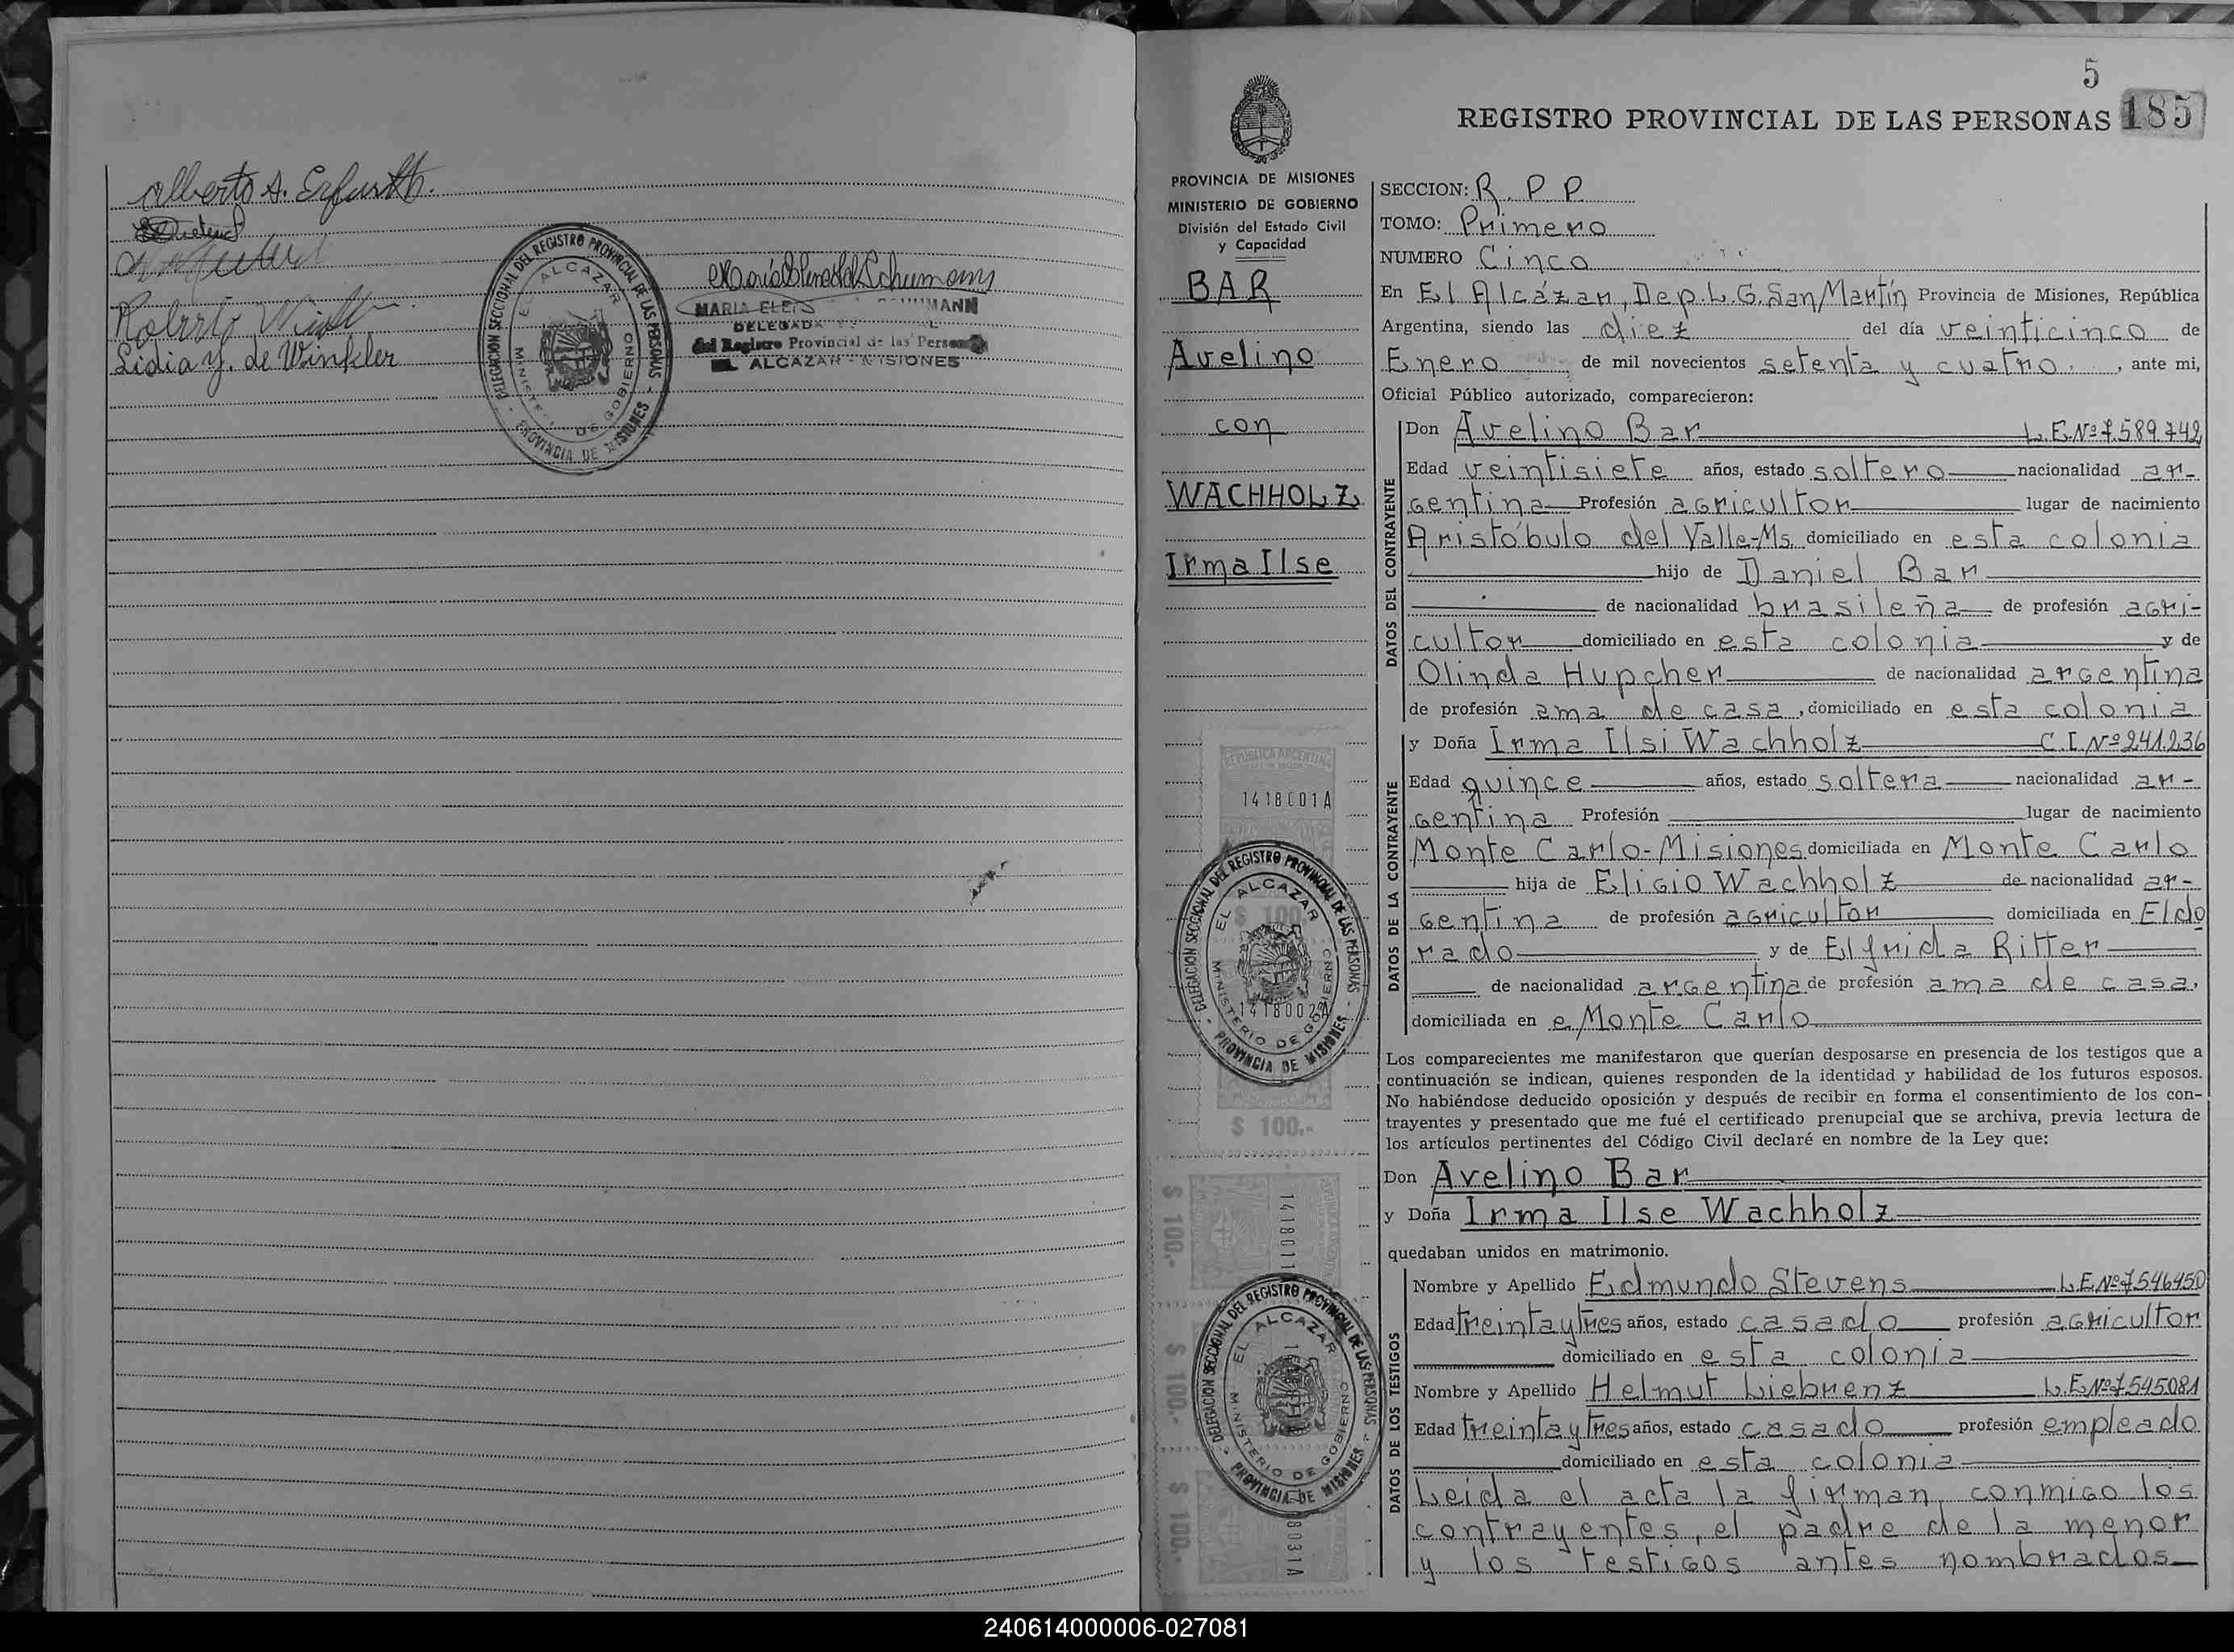 Alberto A. Erfurth.
Roberto Winkler
Lidia Y. de Winkler
DELEGACION SECCIONAL DEL REGISTRO PROVINCIAL DE LAS PERSONAS
EL ALCAZAR
MINISTERIO DE GOBIERNO
PROVINCIA DE MISIONES
MARIA
DELEGADA
del Registro Provincial de las Personas
EL ALCAZAR - MISIONES
5
REGISTRO PROVINCIAL DE LAS PERSONAS 185
PROVINCIA DE MISIONES
MINISTERIO DE GOBIERNO
División del Estado Civil
y Capacidad
BAR
Avelino
con
WACHHOLZ
Irma Ilse
REPUBLICA ARGENTINA
1418001A
DELEGACION SECCIONAL DEL REGISTRO PROVINCIAL DE LAS PERSONAS
EL ALCAZAR
$ 100.
1418002A
MINISTERIO DE GOBIERNO
PROVINCIA DE MISIONES
$ 100.-
$ 100.-
$ 100.-
$ 100.
DELEGACION SECCIONAL DEL REGISTRO PROVINCIAL DE LAS PERSONAS
EL ALCAZAR
MINISTERIO DE GOBIERNO
PROVINCIA DE MISIONES
SECCION: R. P P
TOMO: Primero
NUMERO Cinco
En El Alcázar, Dep. L. G. San Martín Provincia de Misiones, República
Argentina, siendo las diez del día veinticinco de
Enero de mil novecientos setenta y cuatro, ante mi,
Oficial Público autorizado, comparecieron:
DATOS DEL CONTRAYENTE
Don Avelino Bar L. E. Nº 7.589.742
Edad veintisiete años, estado soltero nacionalidad ar-
gentina Profesión agricultor lugar de nacimiento
Aristóbulo del Valle-Ms. domiciliado en esta colonia
hijo de Daniel Bar
de nacionalidad brasileña de profesión agri-
cultor domiciliado en esta colonia y de
Olinda Hupcher de nacionalidad argentina
de profesión ama de casa, domiciliado en esta colonia
DATOS DE LA CONTRAYENTE
y Doña Irma Ilsi Wachholz C. I. Nº 241.236
Edad quince años, estado soltera nacionalidad ar-
gentina Profesión lugar de nacimiento
Monte Carlo-Misiones domiciliada en Monte Carlo
hija de Eligio Wachholz de nacionalidad ar-
gentina de profesión agricultor domiciliada en Eldo
rado y de Elfrida Ritter
de nacionalidad argentina de profesión ama de casa,
domiciliada en e Monte Carlo
Los comparecientes me manifestaron que querían desposarse en presencia de los testigos que a
continuación se indican, quienes responden de la identidad y habilidad de los futuros esposos.
No habiéndose deducido oposición y después de recibir en forma el consentimiento de los con-
trayentes y presentado que me fué el certificado prenupcial que se archiva, previa lectura de
los artículos pertinentes del Código Civil declaré en nombre de la Ley que:
Don Avelino Bar
y Doña Irma Ilse Wachholz
quedaban unidos en matrimonio.
DATOS DE LOS TESTIGOS
Nombre y Apellido Edmundo Stevens L. E. Nº 7546450
Edad treinta y tres años, estado casado profesión agricultor
domiciliado en esta colonia
Nombre y Apellido Helmut Liebrenz L. E. Nº 7.545.081
Edad treinta y tres años, estado casado profesión empleado
domiciliado en esta colonia
Leída el acta la firman conmigo los
contrayentes, el padre de la menor
y los testigos antes nombrados
240614000006-027081